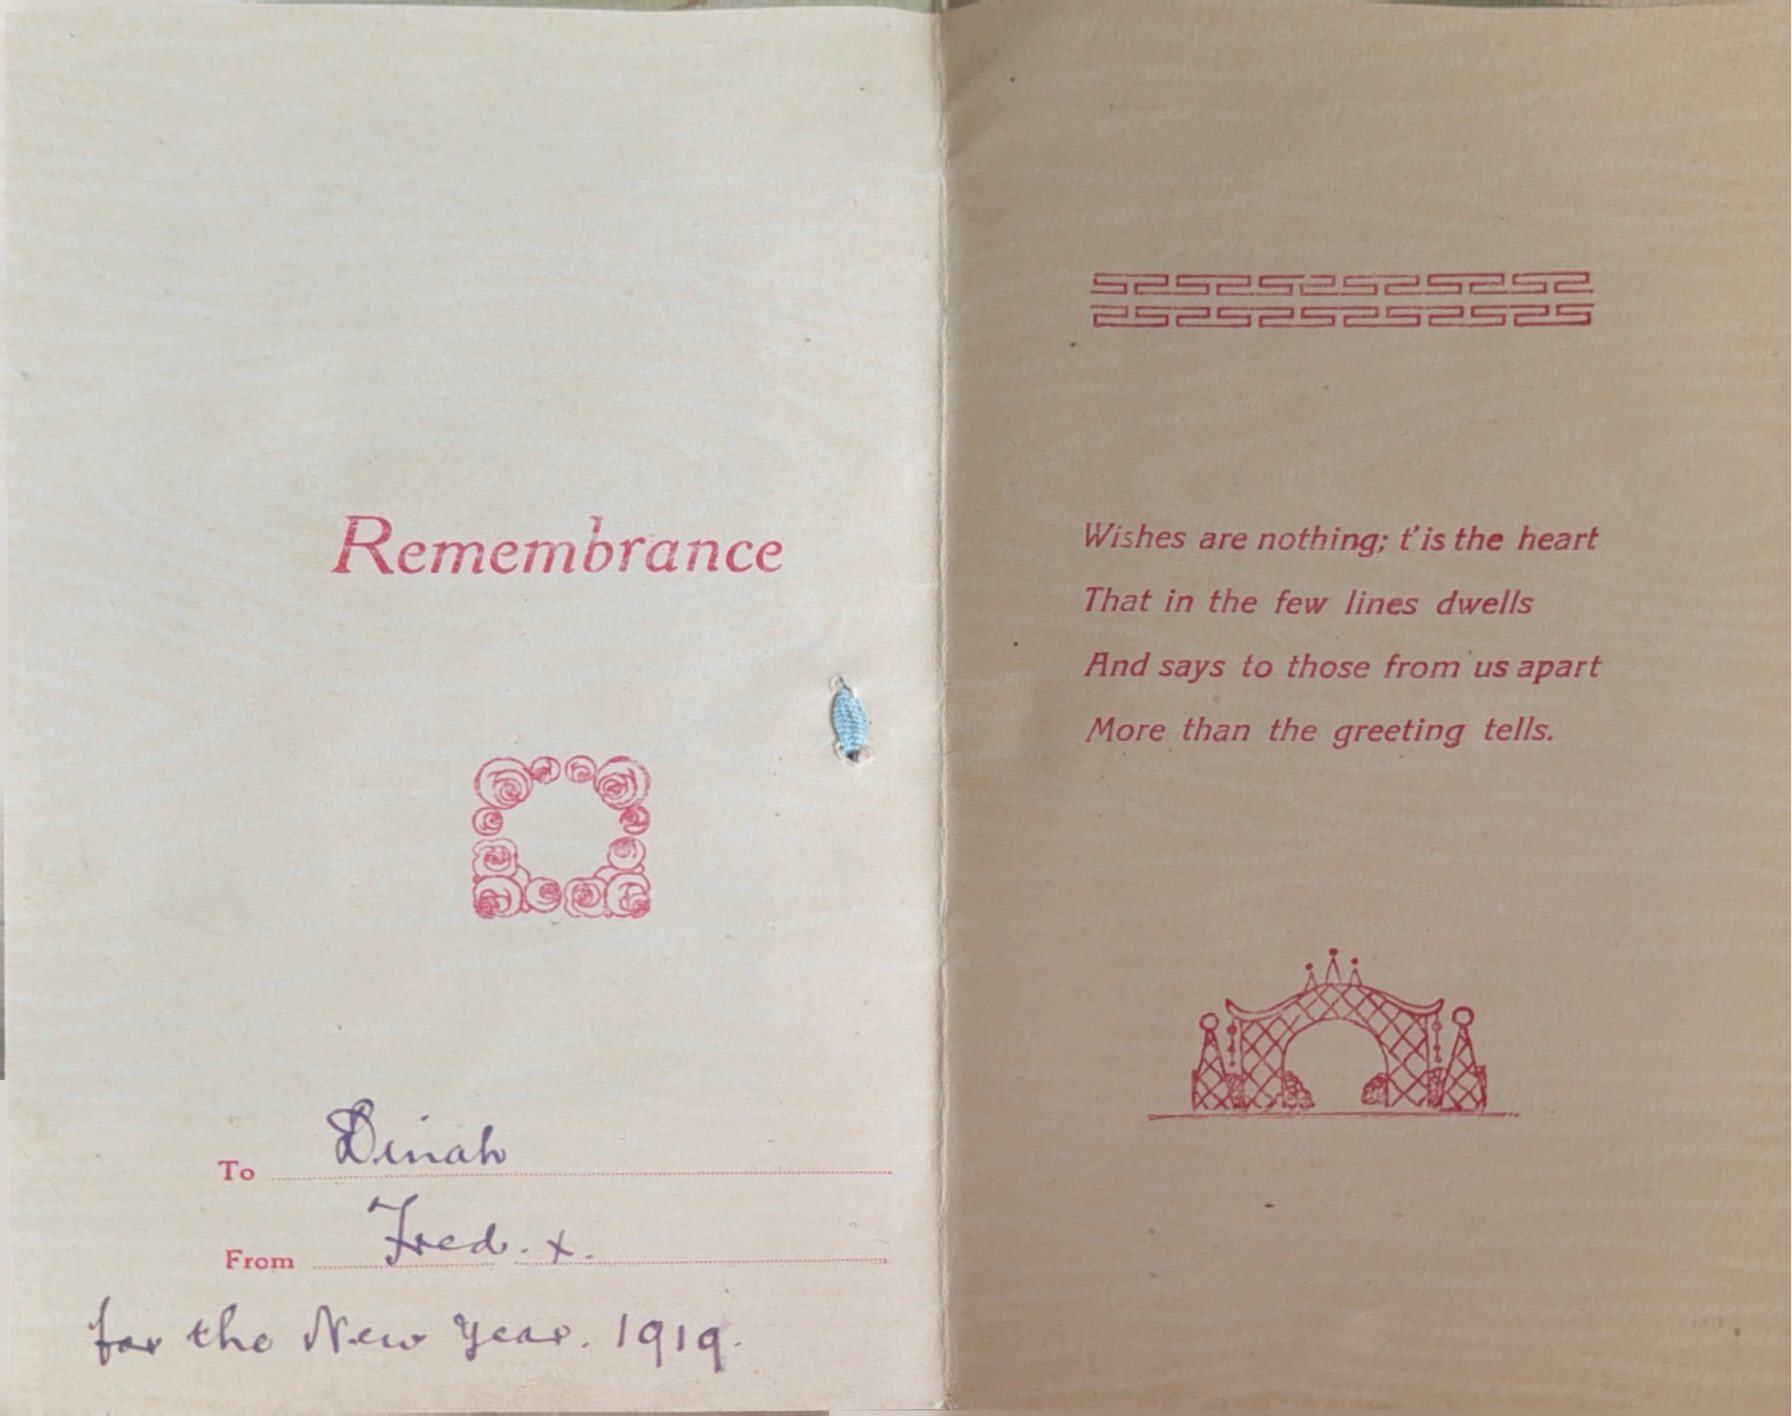 Remembrance
To Dinah
From Fred. x.
for the New Year. 1919.
Wishes are nothing; t'is the heart
That in the few lines dwells
And says to those from us apart
More than the greeting tells.